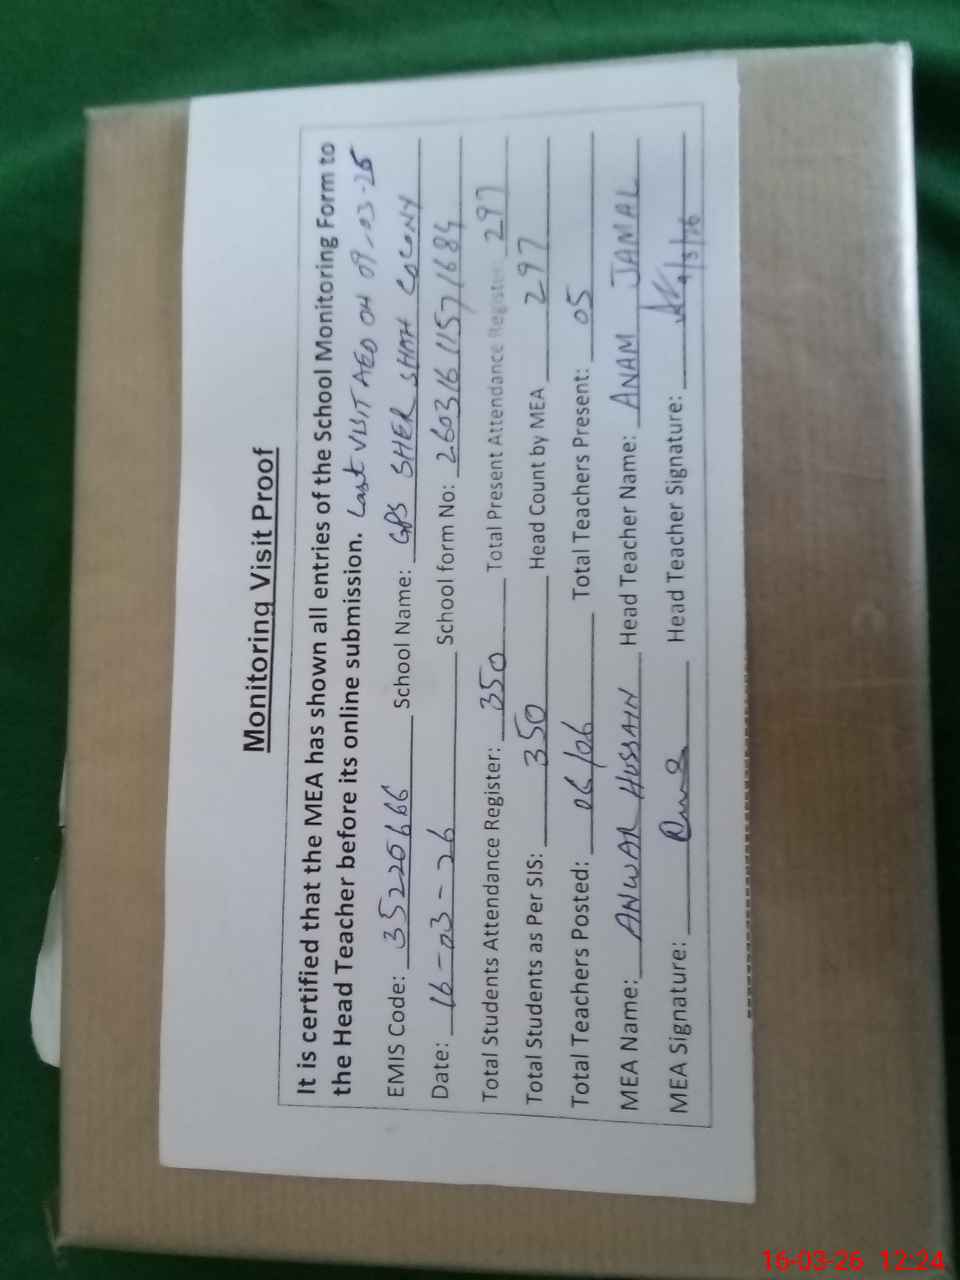 Monitoring Visit Proof
It is certified that the MEA has shown all entries of the School Monitoring Form to
the Head Teacher before its online submission. Last VISIT AEO ON 09-03-26
EMIS Code: 35220666 School Name: GPS SHER SHAH COLONY
Date: 16-03-26 School form No: 26031611571684
Total Students Attendance Register: 350 Total Present Attendance Register: 297
Total Students as Per SIS: 350 Head Count by MEA 297
Total Teachers Posted: 06/06 Total Teachers Present: 05
MEA Name: ANWAR HUSSAIN Head Teacher Name: ANAM JAMAL
MEA Signature: Head Teacher Signature:
16-03-26 12:24